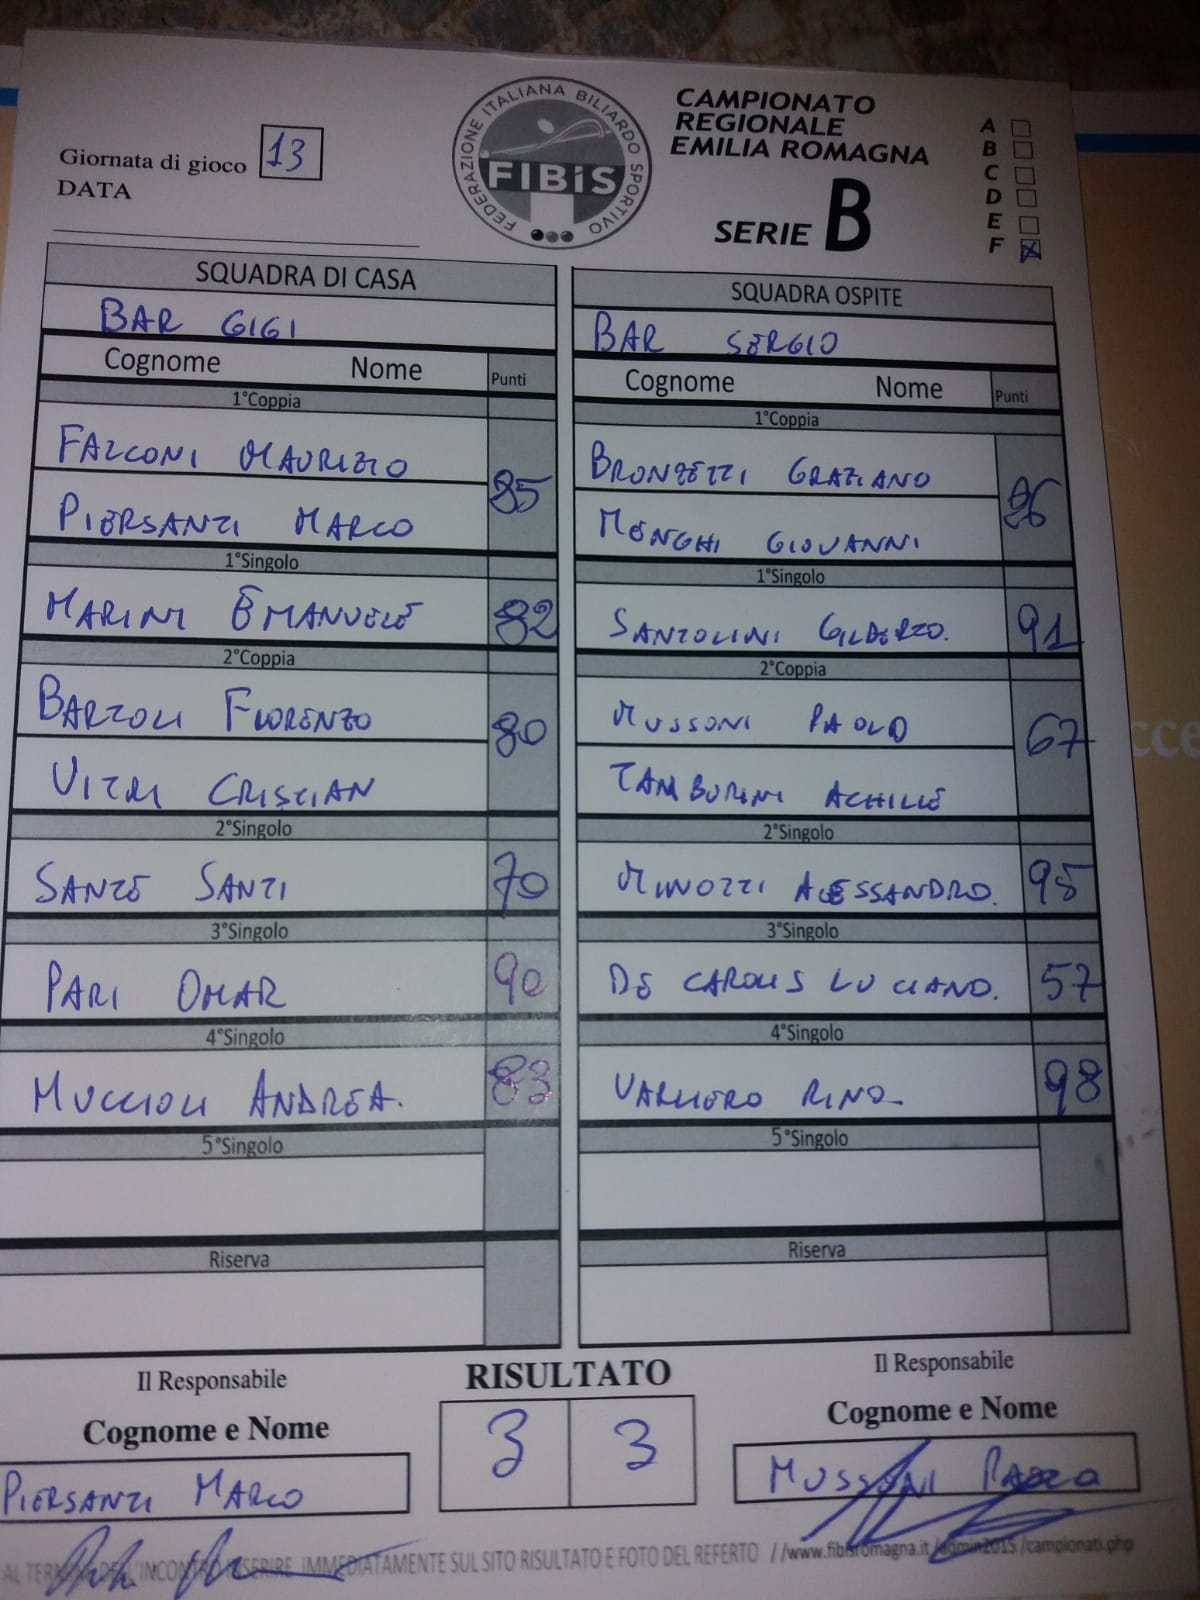 FEDERAZIONE ITALIANA BILIARDO SPORTIVO
FIBiS
CAMPIONATO
REGIONALE
EMILIA ROMAGNA
SERIE B
A
B
C
D
E
F X
Giornata di gioco 13
DATA
SQUADRA DI CASA
BAR GIGI
Cognome Nome Punti
1°Coppia
FALCONI MAURIZIO 85
PIERSANTI MARCO
1°Singolo
MARINI EMANUELE 82
2°Coppia
BARTOLI FIORENZO 80
VITRI CRISTIAN
2°Singolo
SANTE SANTI 70
3°Singolo
PARI OMAR 90
4°Singolo
MUCCIOLI ANDREA. 83
5°Singolo
Riserva
SQUADRA OSPITE
BAR SERGIO
Cognome Nome Punti
1°Coppia
BRONZETTI GRAZIANO 26
MENGHI GIOVANNI
1°Singolo
SANTOLINI GILBERTO. 91
2°Coppia
MUSSONI PAOLO 67
TAMBURINI ACHILLE
2°Singolo
MINOTTI ALESSANDRO. 95
3°Singolo
DE CAROLIS LUCIANO. 57
4°Singolo
VALLIERO RINO 98
5°Singolo
Riserva
Il Responsabile
Cognome e Nome
PIERSANTI MARCO
RISULTATO
3 3
Il Responsabile
Cognome e Nome
MUSSONI PAOLO
AL TERMINE DELL'INCONTRO INSERIRE IMMEDIATAMENTE SUL SITO RISULTATO E FOTO DEL REFERTO //www.fibisromagna.it/admin2015/campionati.php